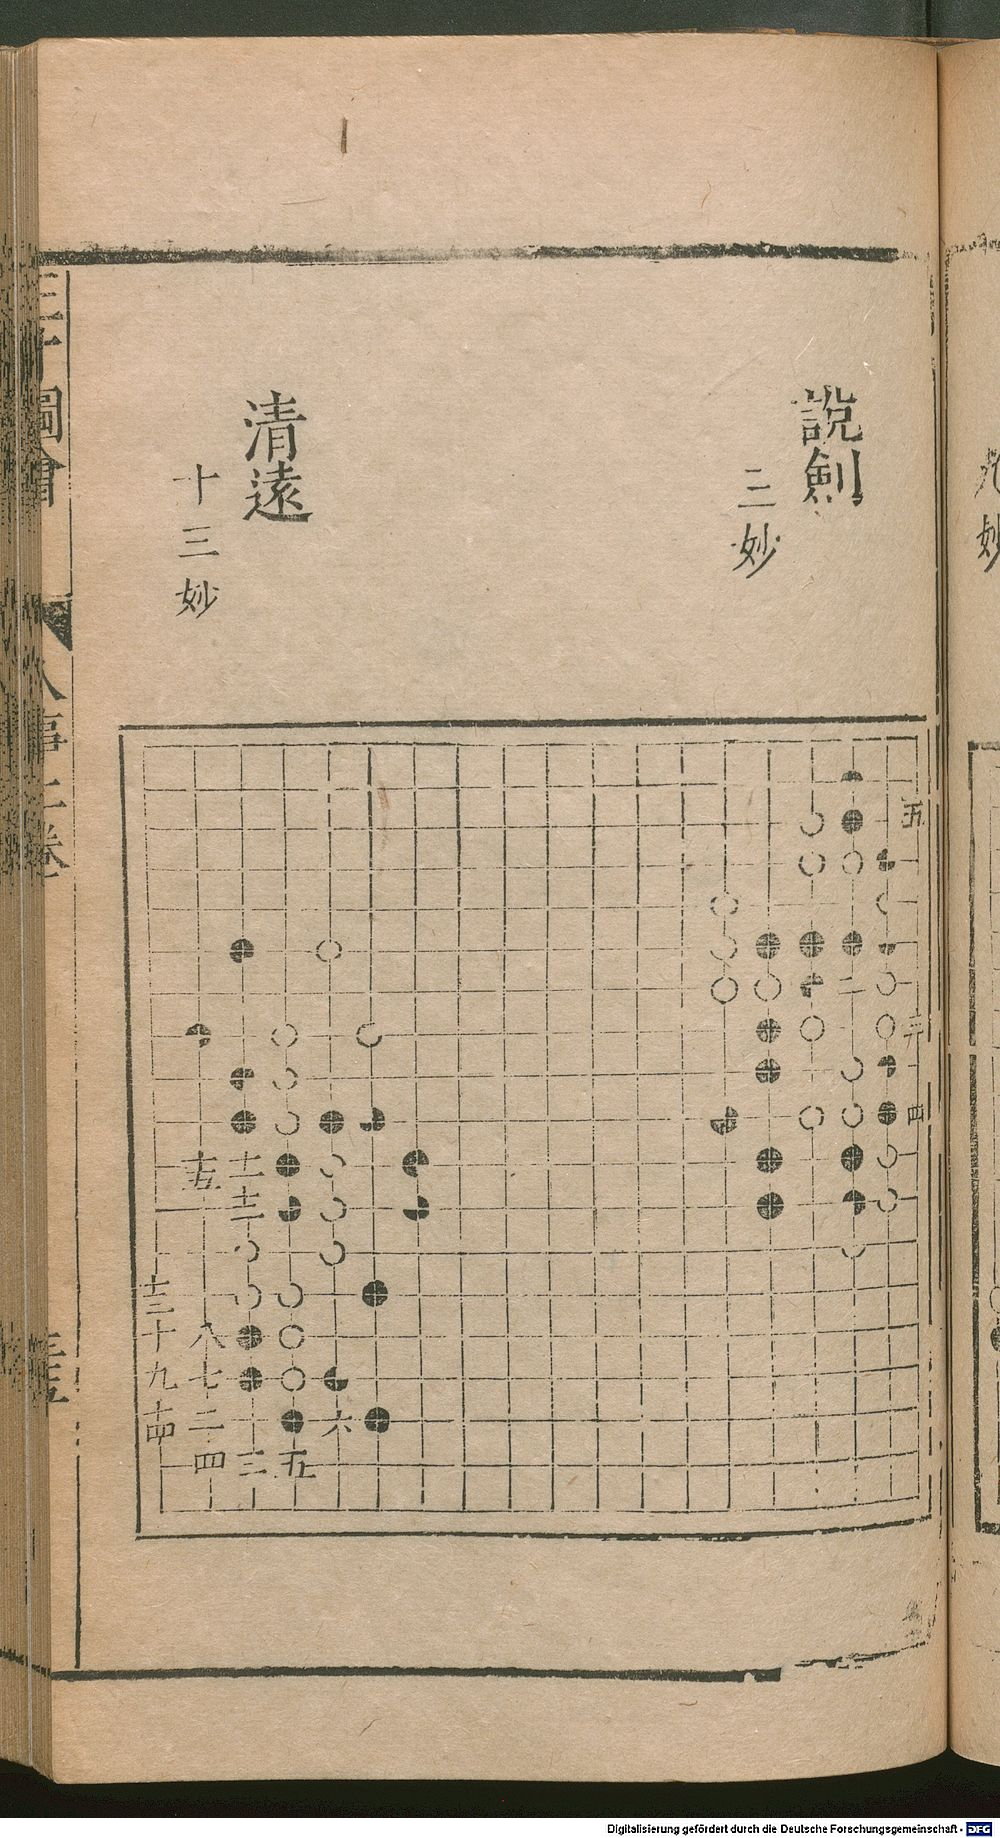 說劍
二妙
清遠
十三妙
五
二
三
四
十一
十五
十二
十三
十
八
九
七
十四
二
六
四
三
五
圖會
人事
卷
九妙
Digitalisierung gefördert durch die Deutsche Forschungsgemeinschaft - DFG